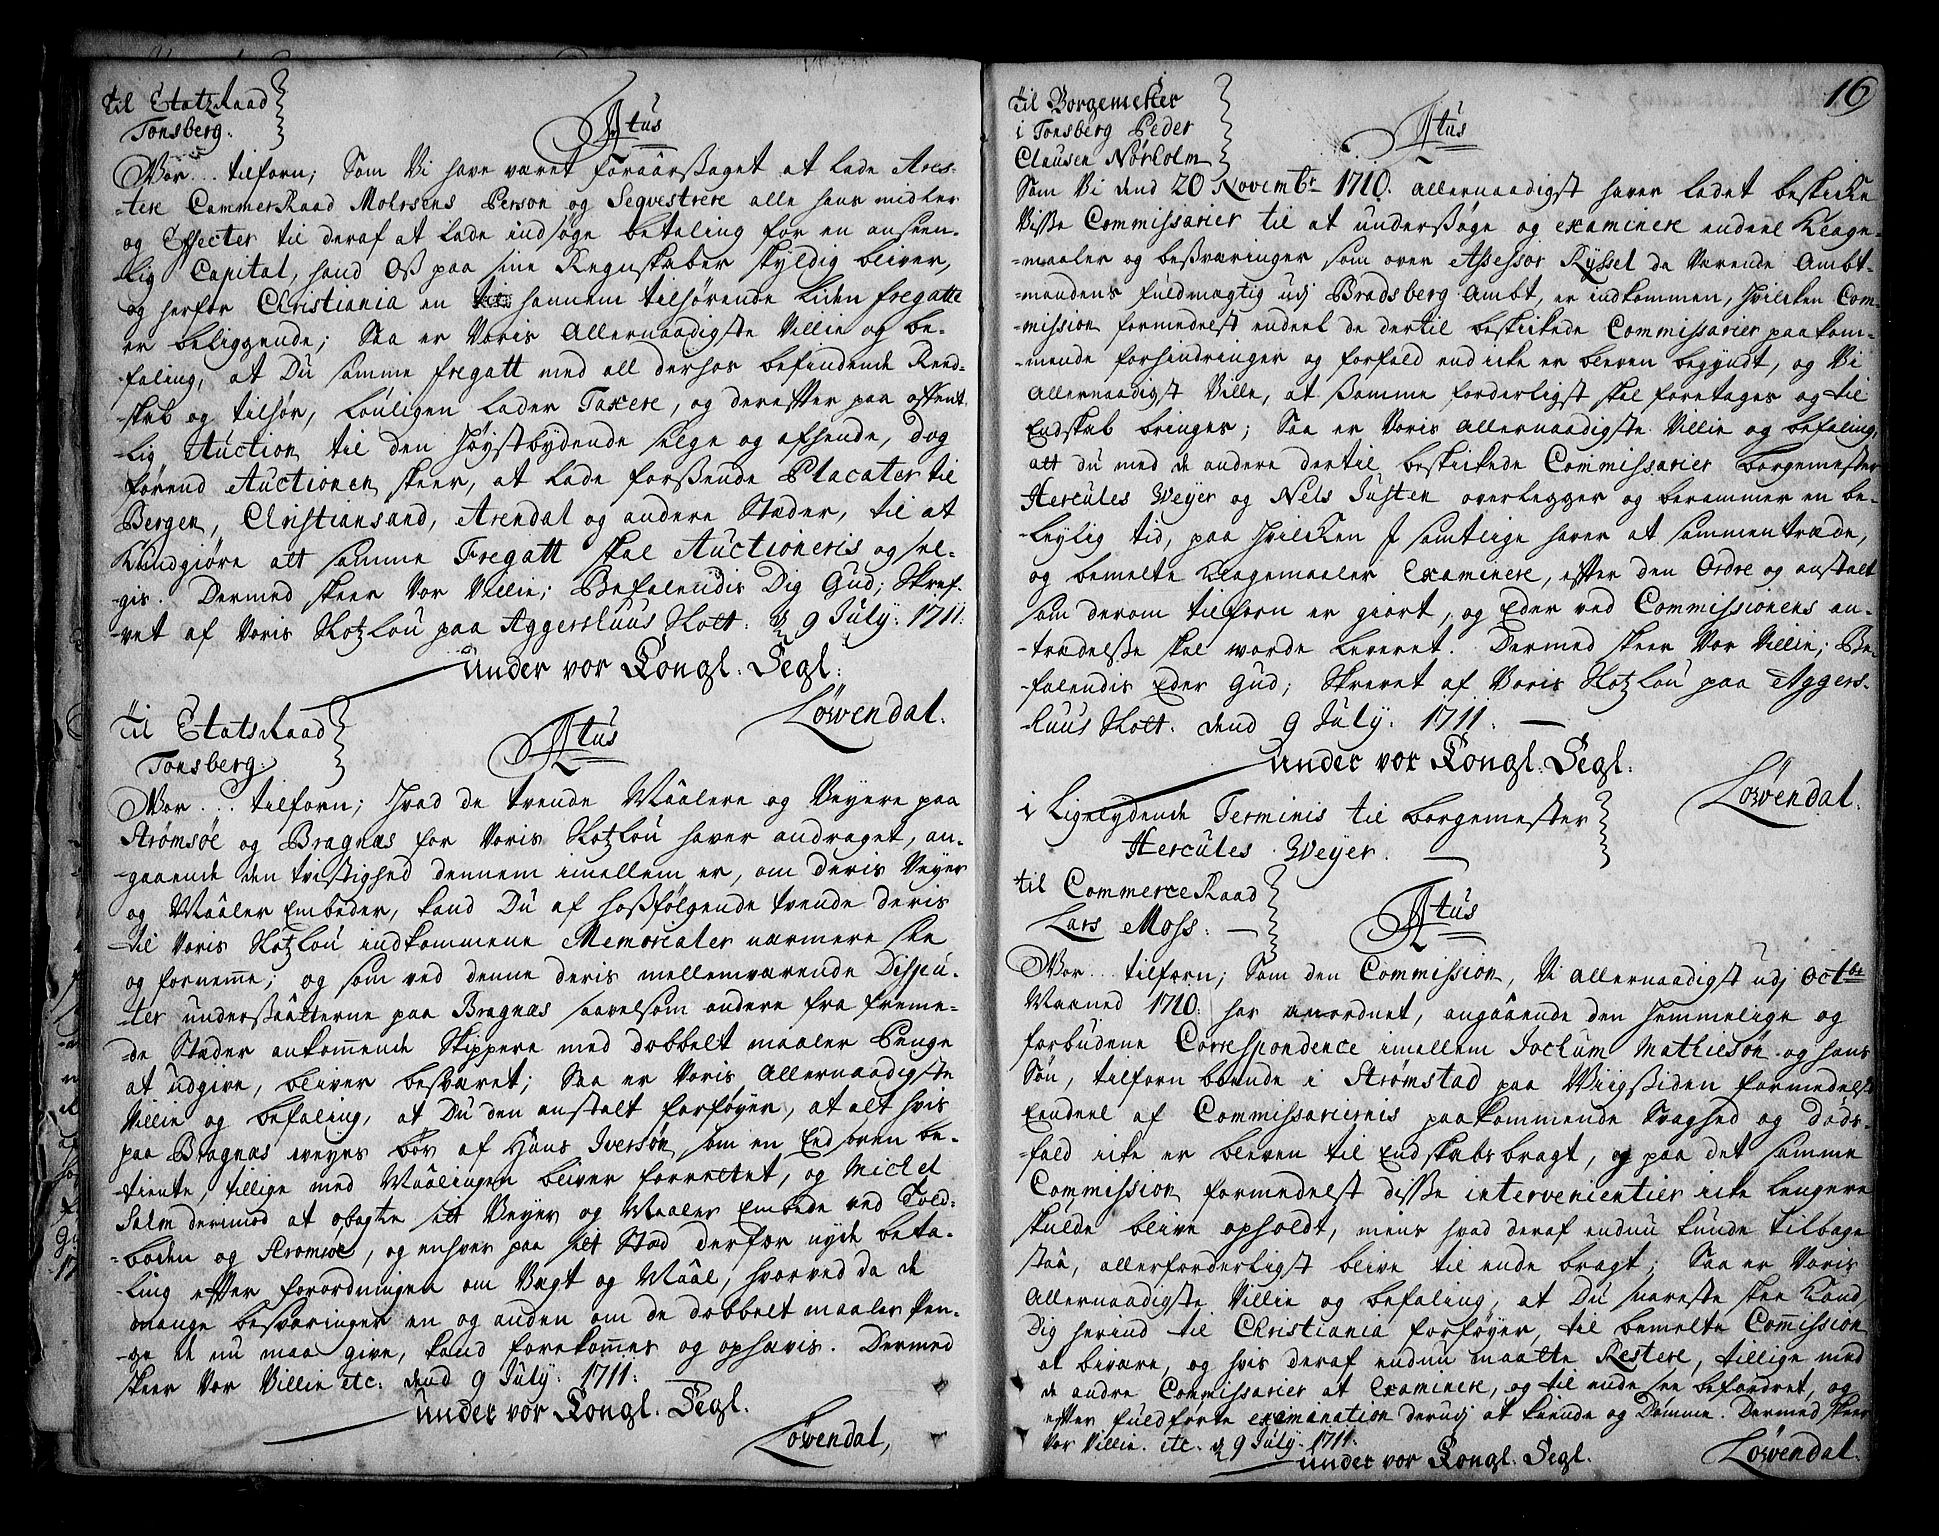 til EtatzRaad
Tonsberg.
Atus
Vor... tilforn; Som Vi have været foraarsaget at lade Ares-
-tere CammerRaad Moersens Person og Seqvestrere alle hans midler
og Effecter til deraf at lade indsøge betaling for en anseen-
-lig Capital, hand Oss paa sine Regnskaber skyldig bliver,
og herfor Christiania en hannem tilhørende liden fregatte
er beliggende; Saa er Voris Allernaadigste Villie og be-
faling, at Du samme fregatt med all derhos befindende Reed-
-skab og tilhør, louligen lader Taxere, og derefter paa offent
-lig Auction til den høystbydende selge og afhende, dog
førend Auctionen skeer, at lade forsende Placater til
Bergen, Christiansand, Arendal og andere Stæder, til at
Kundgiøre att samme Fregatt skal Auctioneris og sel-
-gis. Dermed skeer Vor Villie; Befalendis Dig Gud; Skref-
-vet af Voris Slotzlou paa Aggershuus Slott. d 9 July. 1711.
under vor Kongl. Segl.
Løwendal.
til EtatsRaad
Tonsberg.
Atus
Vor... tilforn; Hvad de trende Maalere og Veyere paa
Strømsøe og Bragnæs for Voris Slotzlou haver andraget, an-
-gaaende den tvistighed dennem imellem er, om deris Veyer
og Maaler Embeder, kand Du af hosfølgende trende deris
til Voris Slotzlou indkommene Memorialer nærmere see
og fornemme; og som ved denne deris mellemværende Dispu-
-ter undersaatterne paa Bragnæs saavelsom andere fra freme-
-de Stæder ankommende Skippere med dobbelt maaler Penge
at udgive, bliver besværet; Saa er Voris Allernaadigste
Villie og befaling, at Du den anstalt forføyer, at alt hvis
paa Bragnæs weyes bør af Hans Iversøn, som en Eedsoren be-
-tiente, tillige med Maalingen bliver forrettet, og Michel
Salm dermod at opagte sitt Veyer og Maaler Embede ved Told-
-boden og Strømsøe, og enhver paa sitt Stæd derfor nyde beta-
-ling efter forordningen om Vegt og Maal, hvorved da de
mange besværinger en og anden om de dobbelt maaler Pen-
-ge de nu maa give, kand forekommes og ophævis. Dermed
skeer Vor Villie etc. dend 9 July. 1711.
under vor Kongl. Segl.
Løwendal,
16
til Borgemester
i Tonsberg Peder
Clausen Nørholm
Atus
Som Vi dend 20 Novembr 1710. allernaadigst haver ladet beskicke
Visse Commissarier til at undersøge og examinere endeel Klage-
-maaler og besværinger som over Assessor Ryssel da Værende Ambt-
-mandens fuldmægtig udj Bradsberg Ambt, er indkommen, hvilcken Com-
-mission formedelst endeel de dertil beskickede Commissarier paakom-
-mende forhindringer og forfald end icke er bleven begyndt, og Vi
Allernaadigst Ville, at samme forderligst skal foretages og til
Endskab bringes; Saa er Voris allernaadigste Villie og befaling,
att du med de andere dertil beskickede Commissarier borgemester
Hercules Weyer og Nels Justen overlegger og berammer en be-
-leylig tid, paa hvilcken I samtlige haver at sammentræde,
og bemelte klagemaaler Examinere, efter den Ordre og anstalt
som derom tilforn er giort, og Eder ved Commissionens an-
-trædelse skal worde leveret. Dermed skeer Vor Villie; Be-
-falendis Eder Gud; Skrevet af Voris Slotzlou paa Aggers-
-huus Slott. dend 9 July. 1711.
under vor Kongl. Segl.
Løwendal.
i Ligelydende Terminis til borgemester
Hercules Weyer.
til CommerceRaad
Lars Moss.
Atus
Vor... tilforn; Som den Commission, Vi allernaadigst udj Octbr
Maaned 1710. har anordnet, angaaende den hemmelige og
forbudene Correspondence imellem Jochum Mathiesøn og hans
Søn, tilforn boende i Strømstad paa Wiigsiden formedelst
Eendeel af Commissariernis paakommende Svaghed og døds-
-fald icke er bleven til Endskabs bragt, og paa det samme
Commission formedelst disse intervenientier icke lengere
skulde blive opholdt, mens hvad deraf endnu kunde tilbage
staa, allerforderligst blive til ende bragt; Saa er Voris
Allernaadigste Villie og befaling, at Du snareste skee kand
Dig herind til Christiania forføyer, til bemelte Commission
at bivære, og hvis deraf endnu maatte Restere, tillige med
de andre Commissarier at Examinere, og til ende see befordret, og
efter fuldførte examination derudj at kiende og Dømme. Dermed skeer
Vor Villie. etc. d 9 July. 1711.
under vor Kongl. Segl.
Løwendal.